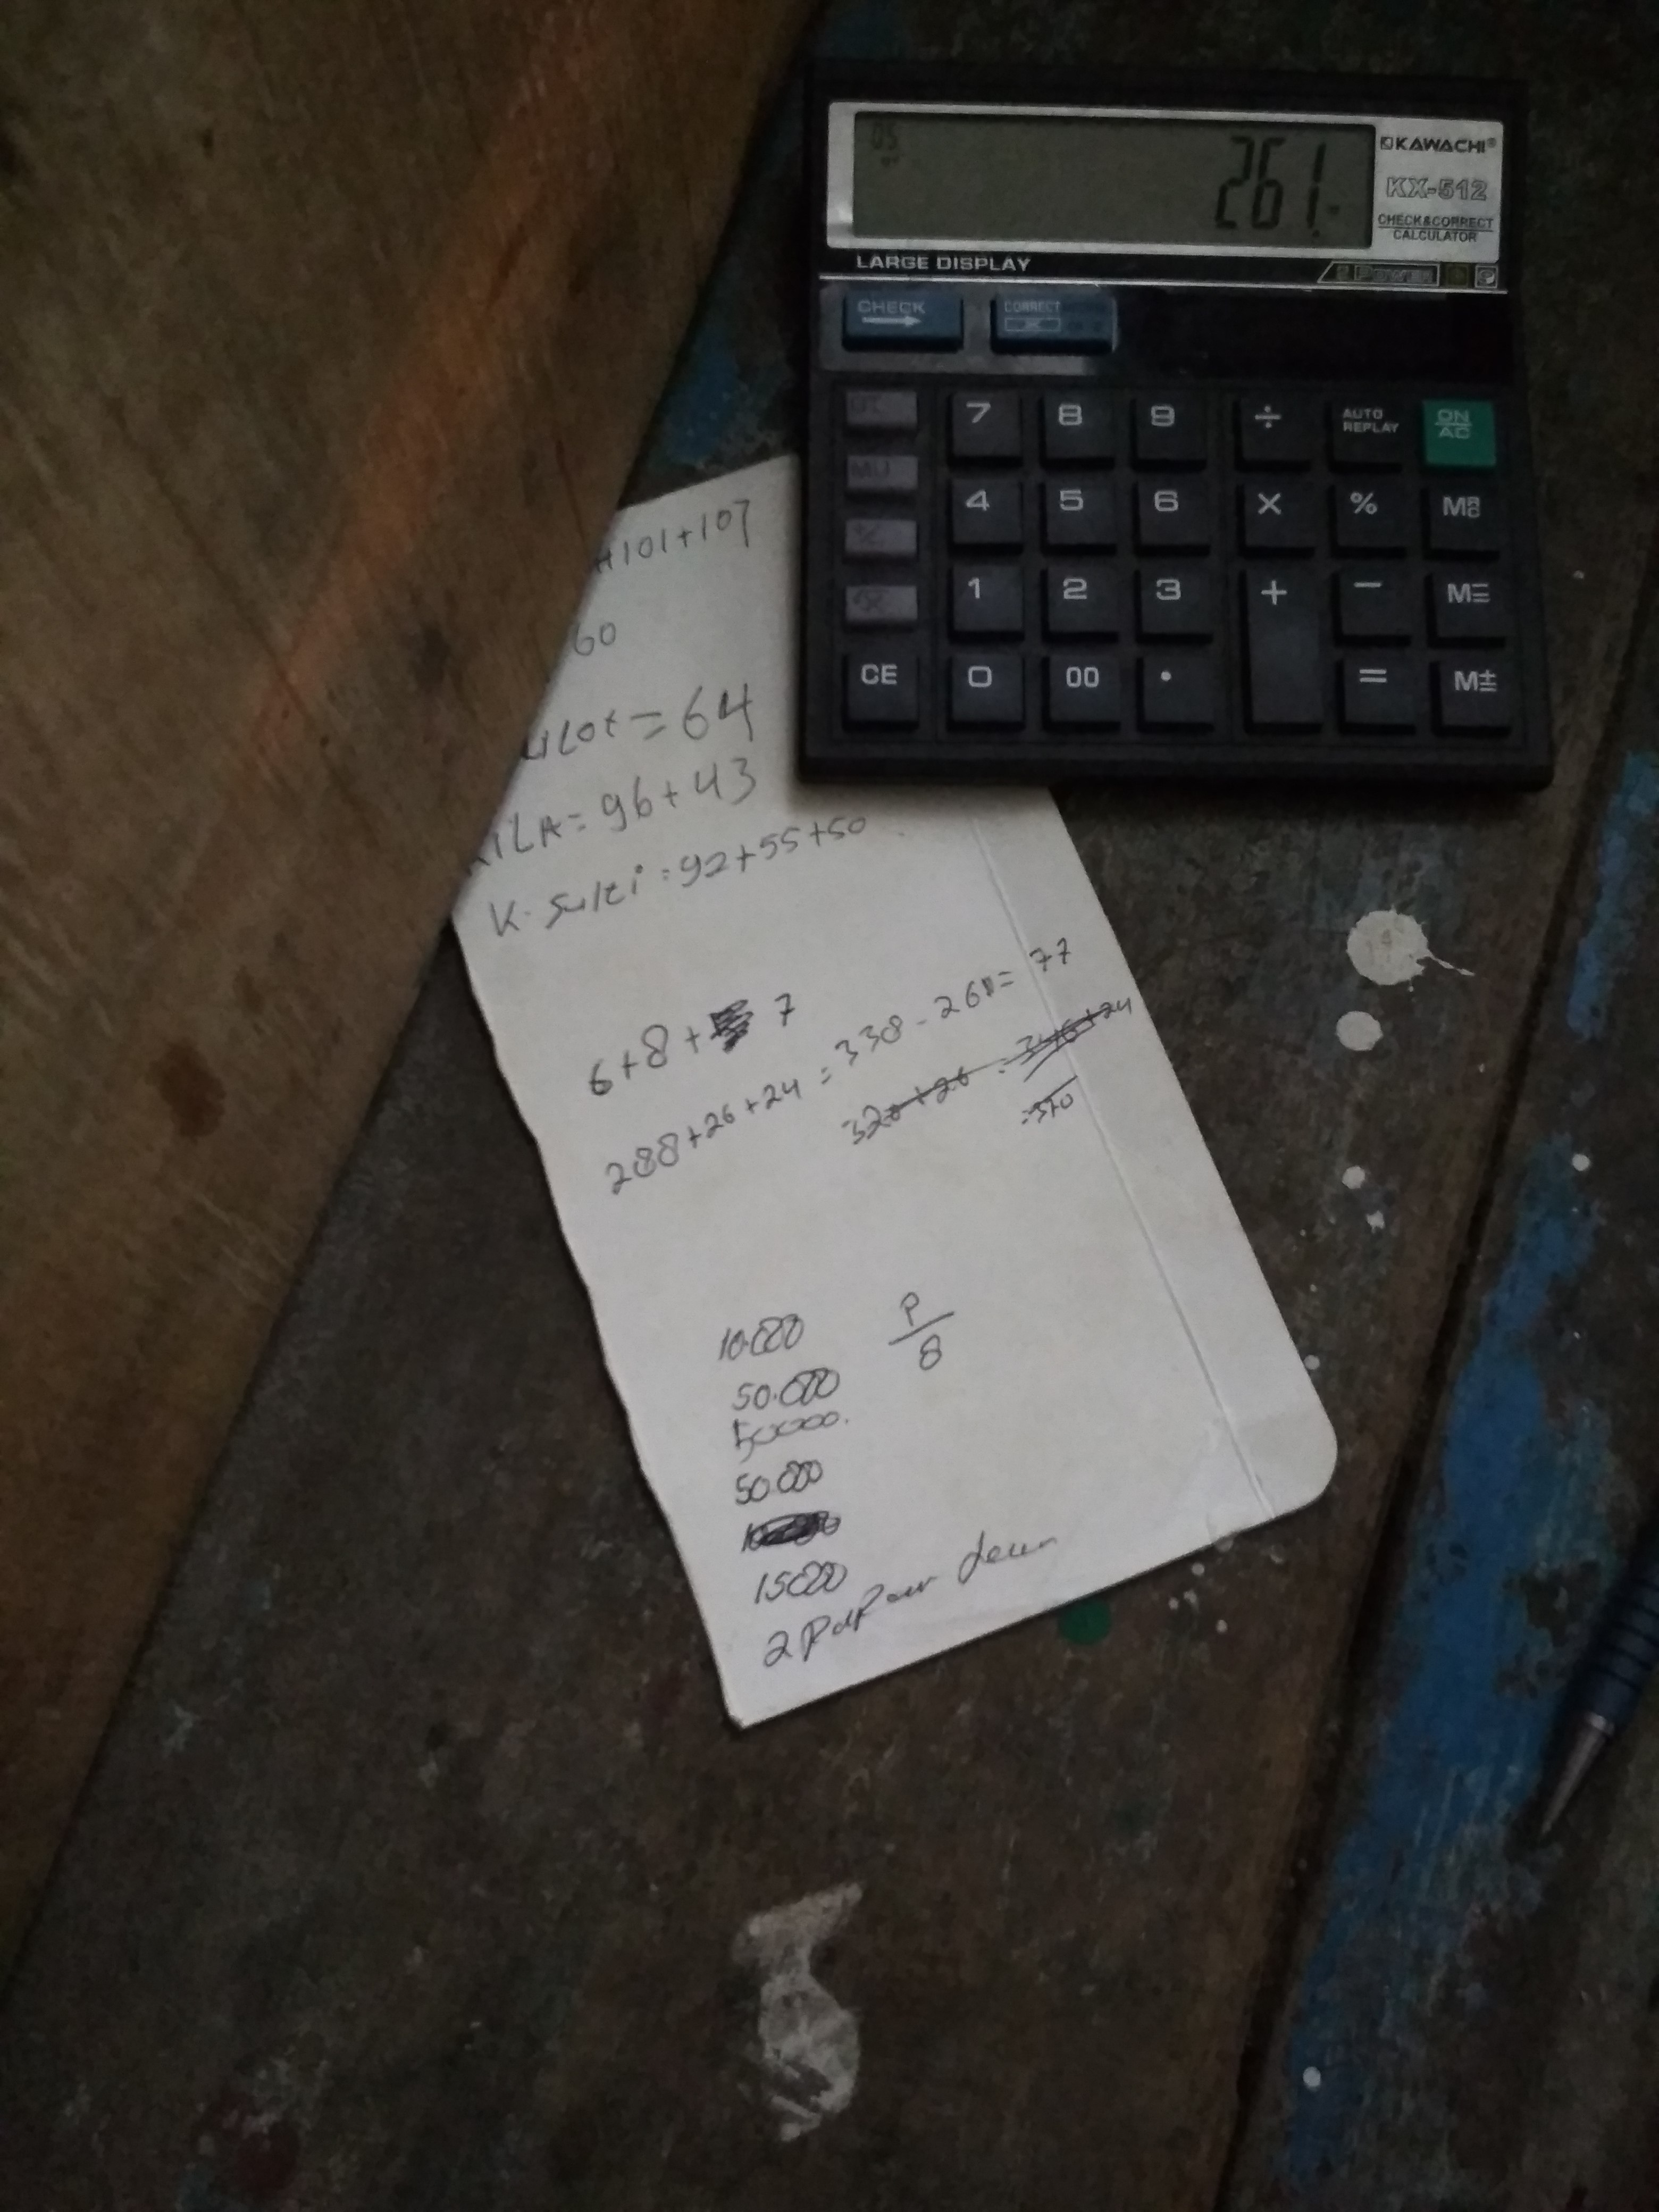 05
261.
KAWACHI®
KX-512
CHECK&CORRECT
CALCULATOR
LARGE DISPLAY
CHECK
CORRECT
MU
7 8 9 ÷ AUTO REPLAY ON/AC
4 5 6 × %
1 2 3 + − M=
CE 0 00 . = M±
+101+107
60
=64
ILA=96+43
K. Sulti:92+55+50
6+8+ 7
288+26+24=338-261=77
=370
10.000 P/8
50.000
50000.
50.000
15000
2 Papan